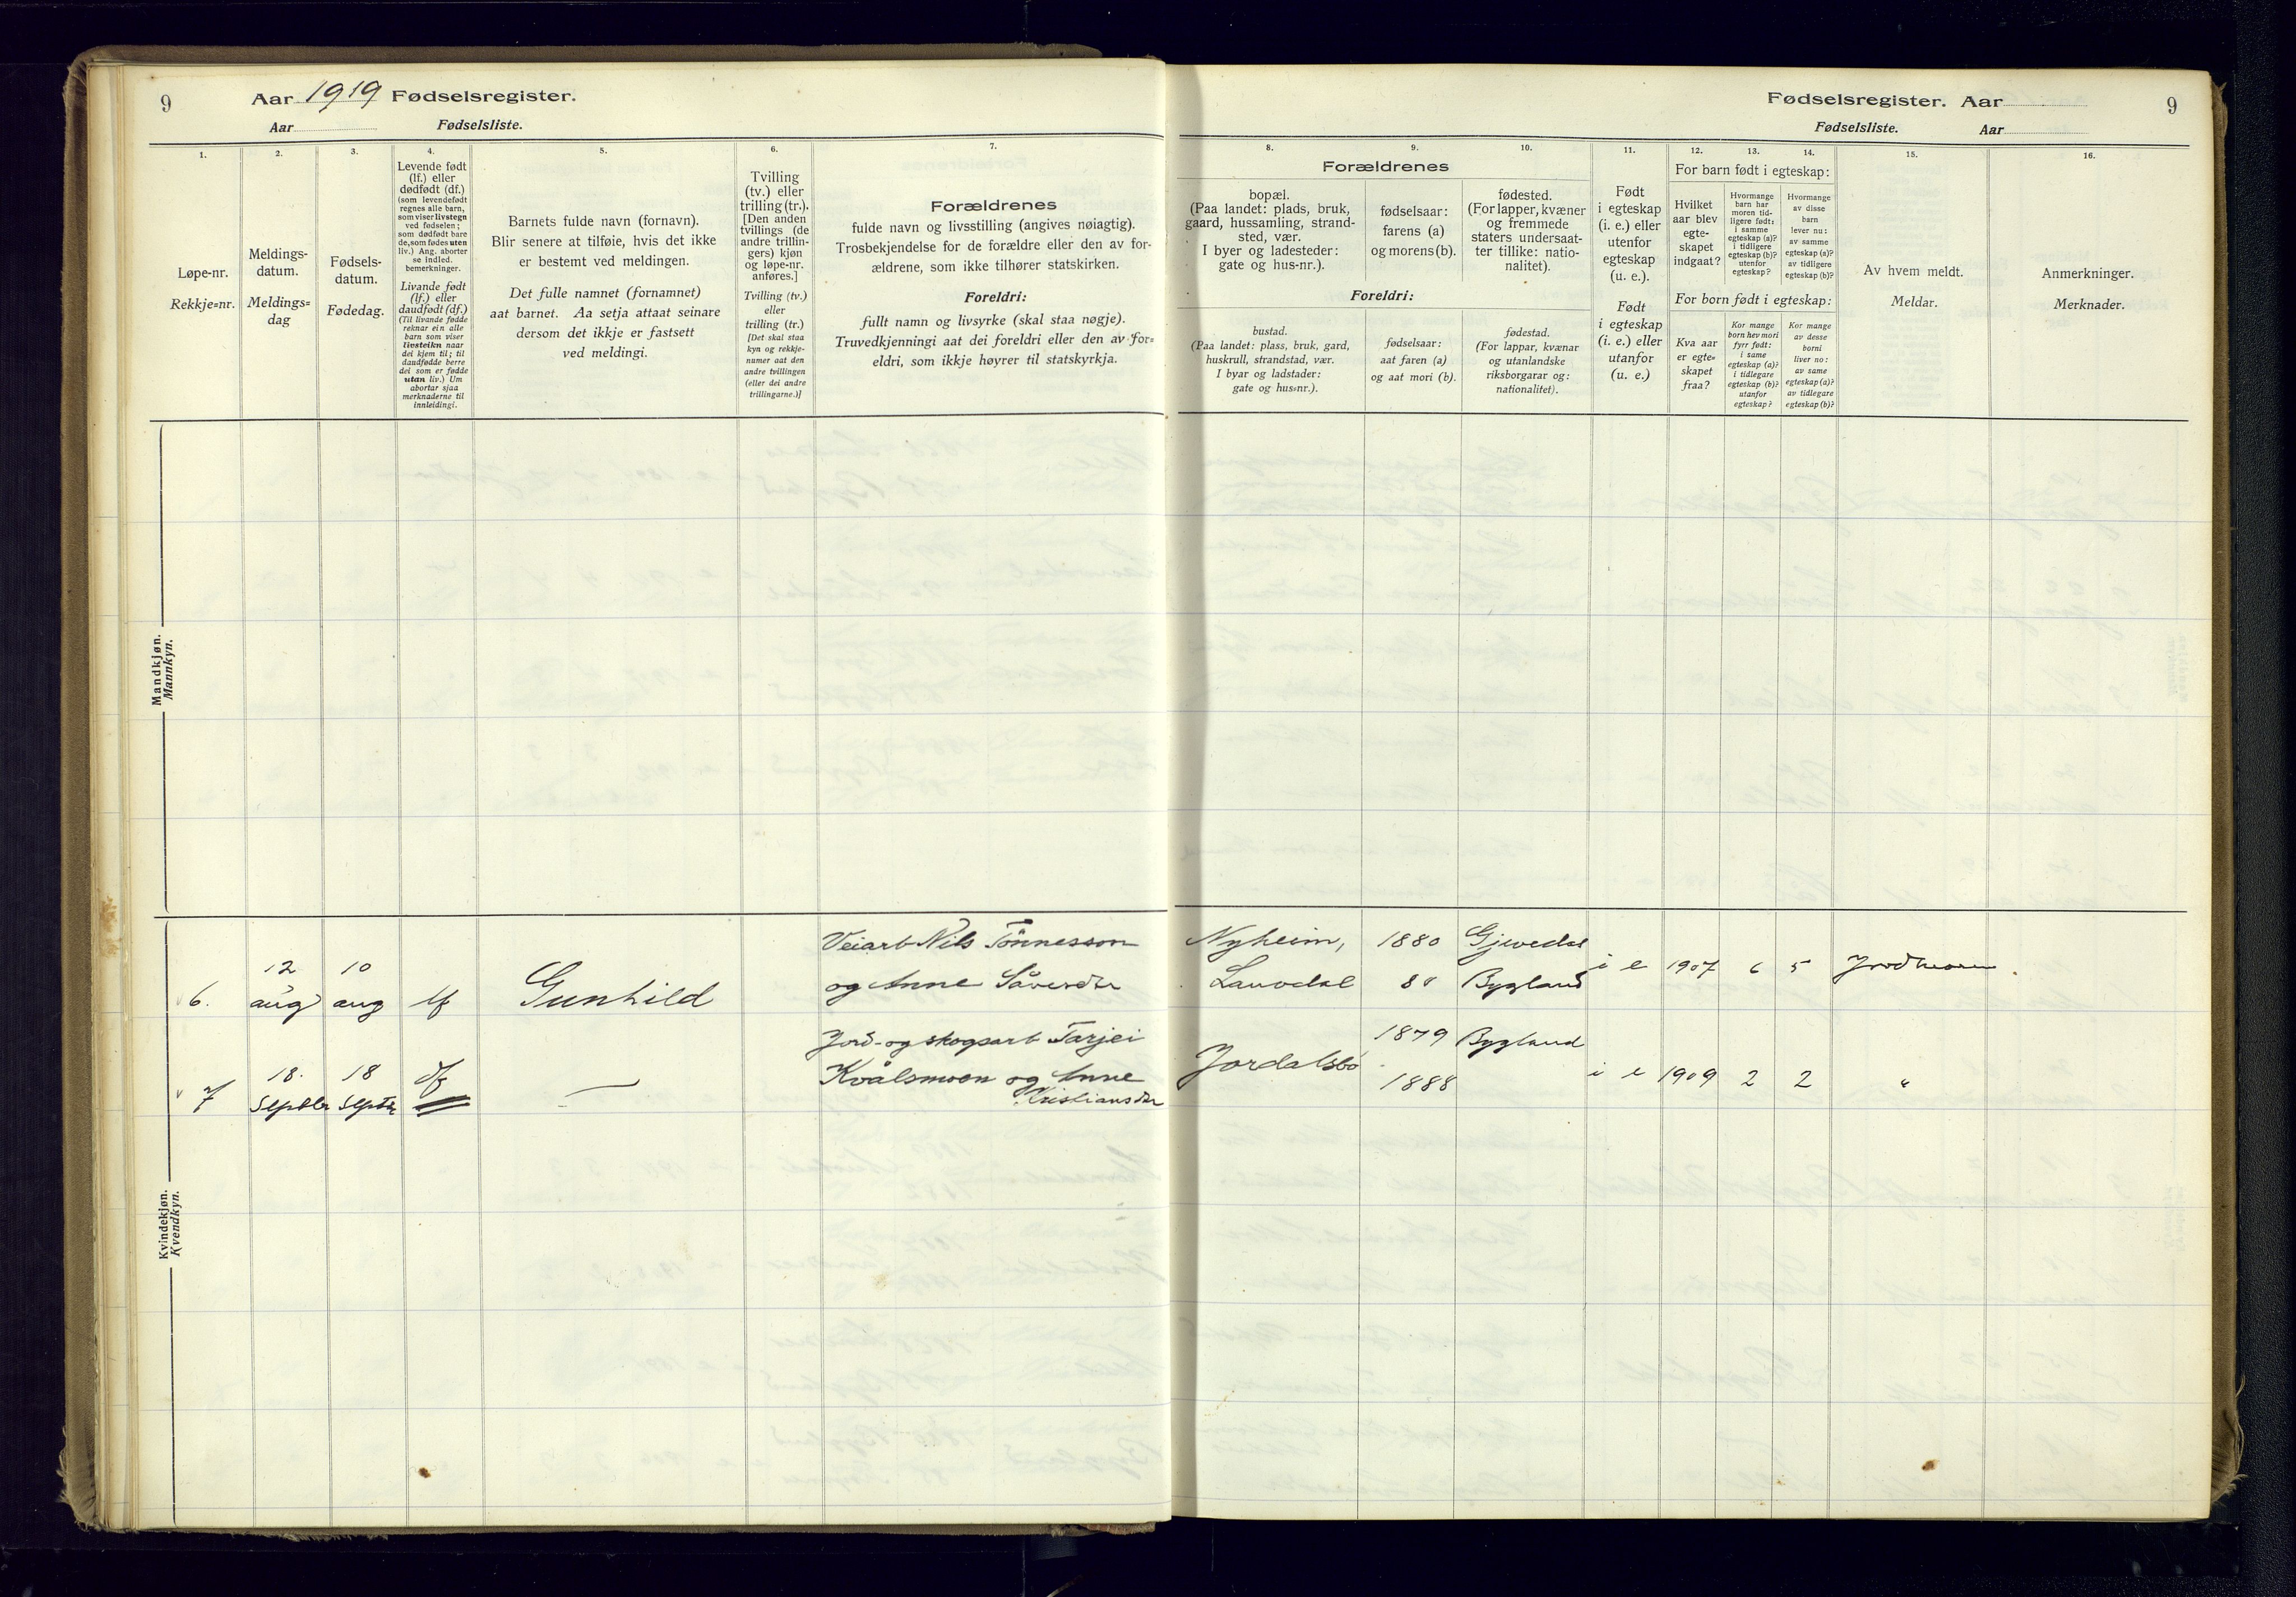 9
Aar 1919 Fødselsregister.
Aar Fødselsliste.
1.
Løpe-nr.
Rekkje=nr.
2.
Meldings-
datum.
Meldings=
dag
3.
Fødsels-
datum.
Fødedag.
4.
Levende født
(lf.) eller
dødfødt (df.)
(som levendefødt
regnes alle barn,
som viser livstegn
ved fødselen;
som dødfødt bare
de, som fødes uten
liv.) Ang. aborter
se indled.
bemerkninger.
Livande født
(lf.) eller
daudfødt (df.)
(Til livande fødde
reknar ein alle
barn som viser
livsteikn naar
dei kjem til; til
daudfødde berre
dei som er fødde
utan liv.) Um
abortar sjaa
merknaderne til
innleidingi.
5.
Barnets fulde navn (fornavn).
Blir senere at tilføie, hvis det ikke
er bestemt ved meldingen.
Det fulle namnet (fornamnet)
aat barnet. Aa setja attaat seinare
dersom det ikkje er fastsett
ved meldingi.
6.
Tvilling
(tv.) eller
trilling (tr.).
[Den anden
tvillings (de
andre trillin-
gers) kjøn
og løpe-nr.
anføres.]
Tvilling (tv.)
eller
trilling (tr.)
[Det skal staa
kyn og rekkje-
numer aat den
andre tvillingen
(eller dei andre
trillingarne.)]
7.
Forældrenes
fulde navn og livsstilling (angives nøiagtig).
Trosbekjendelse for de forældre eller den av for-
ældrene, som ikke tilhører statskirken.
Foreldri:
fullt namn og livsyrke (skal staa nøgje).
Truvedkjenningi aat dei foreldri eller den av for=
eldri, som ikkje høyrer til statskyrkja.
Mandkjøn.
Mannkyn.
6.
12
aug
10
aug
lf
Gunhild
Veiarb Nils Tönnesson
og Anne
7
18.
Septbr
18
Septbr
df
—
Jord- og skogsarb Tarjei
Kvålsmoen og Anne
Kristiansdtr
Kvindekjøn.
Kvendkyn.
Fødselsregister. Aar
9
Fødselsliste. Aar
8.
Forældrenes
bopæl.
(Paa landet: plads, bruk,
gaard, hussamling, strand-
sted, vær.
I byer og ladesteder:
gate og hus-nr.).
Foreldri:
bustad.
(Paa landet: plass, bruk, gard,
huskrull, strandstad, vær.
I byar og ladstader:
gate og hus=nr.).
9.
fødselsaar:
farens (a)
og morens (b).
fødselsaar:
aat faren (a)
og aat mori (b).
10.
fødested.
(For lapper, kvæner
og fremmede
staters undersaat-
ter tillike: natio-
nalitet).
fødestad.
(For lappar, kvænar
og utanlandske
riksborgarar og:
nationalitet).
11.
Født
i egteskap
(i. e.) eller
utenfor
egteskap
(u. e.).
Født
i egteskap
(i. e.) eller
utanfor
(u. e.)
For barn født i egteskap:
12.
Hvilket
aar blev
egte-
skapet
indgaat?
13.
Hvormange
barn har
moren tid-
ligere født:
i samme
egteskap (a)?
i tidligere
egteskap (b)?
utenfor
egteskap?
14.
Hvormange
av disse
barn
lever nu:
av samme
egteskap (a)?
av tidligere
egteskap (b)?
For born født i egteskap:
Kva aar
er egte=
skapet
fraa?
Kor mange
born hev mori
fyrr født:
i same
egteskap (a)?
i tidlegare
egteskap (b)?
utanfor
egteskap?
Kor mange
av desse
borni
liver no:
av same
egteskap (a)?
av tidlegare
egteskap (b)?
15.
Av hvem meldt.
Meldar.
16.
Anmerkninger.
Merknader.
Nyheim, 1880 Gjevedal
Lauvdal 80 Bygland i e 1907 6 5 Jordmoren
1879 Bygland
Jordalsbø 1888 i e 1909 2 2 "